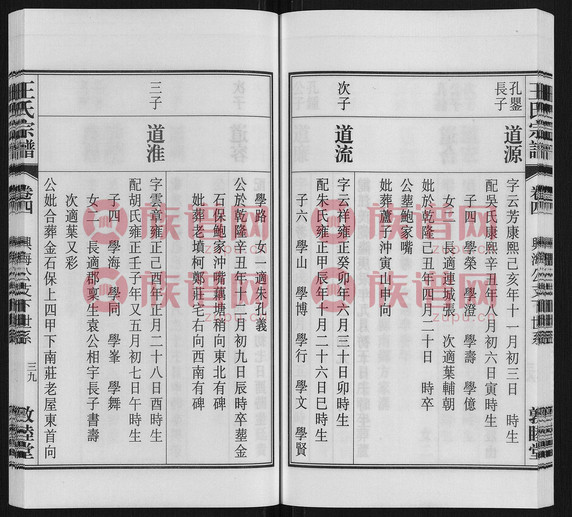 王氏宗譜
卷四
興海公支下世系
敦睦堂
孔璺長子
道源
字云芳康熙己亥年十一月初三日 時生
配吳氏康熙辛丑年八月初六日寅時生
子四 學榮 學澄 學壽 學億
女二 長適連城張 次適葉輔朝
妣於乾隆己丑年四月二十日 時卒
公塟鮑家嘴
妣葬蘆子沖寅山申向
次子
道流
字云祥雍正癸卯年六月三十日卯時生
配朱氏雍正甲辰年十月二十六日巳時生
子六 學山 學博 學行 學文 學賢
學路 女一適朱孔義
公於乾隆辛丑年十二月初九日辰時卒塟金
石保鮑家沖嘴藕塘稍向東北有碑
妣葬老墳柯鄭莊屯右向西南有碑
三子
道淮
字雲章雍正己酉年正月二十八日酉時生
配胡氏雍正壬子年又五月初七日午時生
子四 學海 學同 學峯 學舞
女二 長適郡稟生袁公相宇長子書壽
次適葉又彩
公妣合葬金石保上四甲下南莊老屋東首向
王氏宗譜
卷四
興海公支下世系
三九
敦睦堂
族谱网
zupu.cn